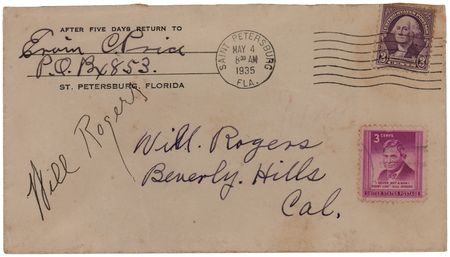 AFTER FIVE DAYS RETURN TO
Ervin C. Price
P.O. Bx 853.
ST. PETERSBURG, FLORIDA
SAINT PETERSBURG
MAY 4
8:30 AM
1935
FLA.
3 3
Will Rogers
Will. Rogers
Beverly. Hills
Cal.
3 CENTS
UNITED STATES POSTAGE